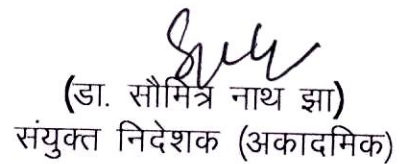 (डा. सौमित्र नाथ झा)
संयुक्त निदेशक (अकादमिक)